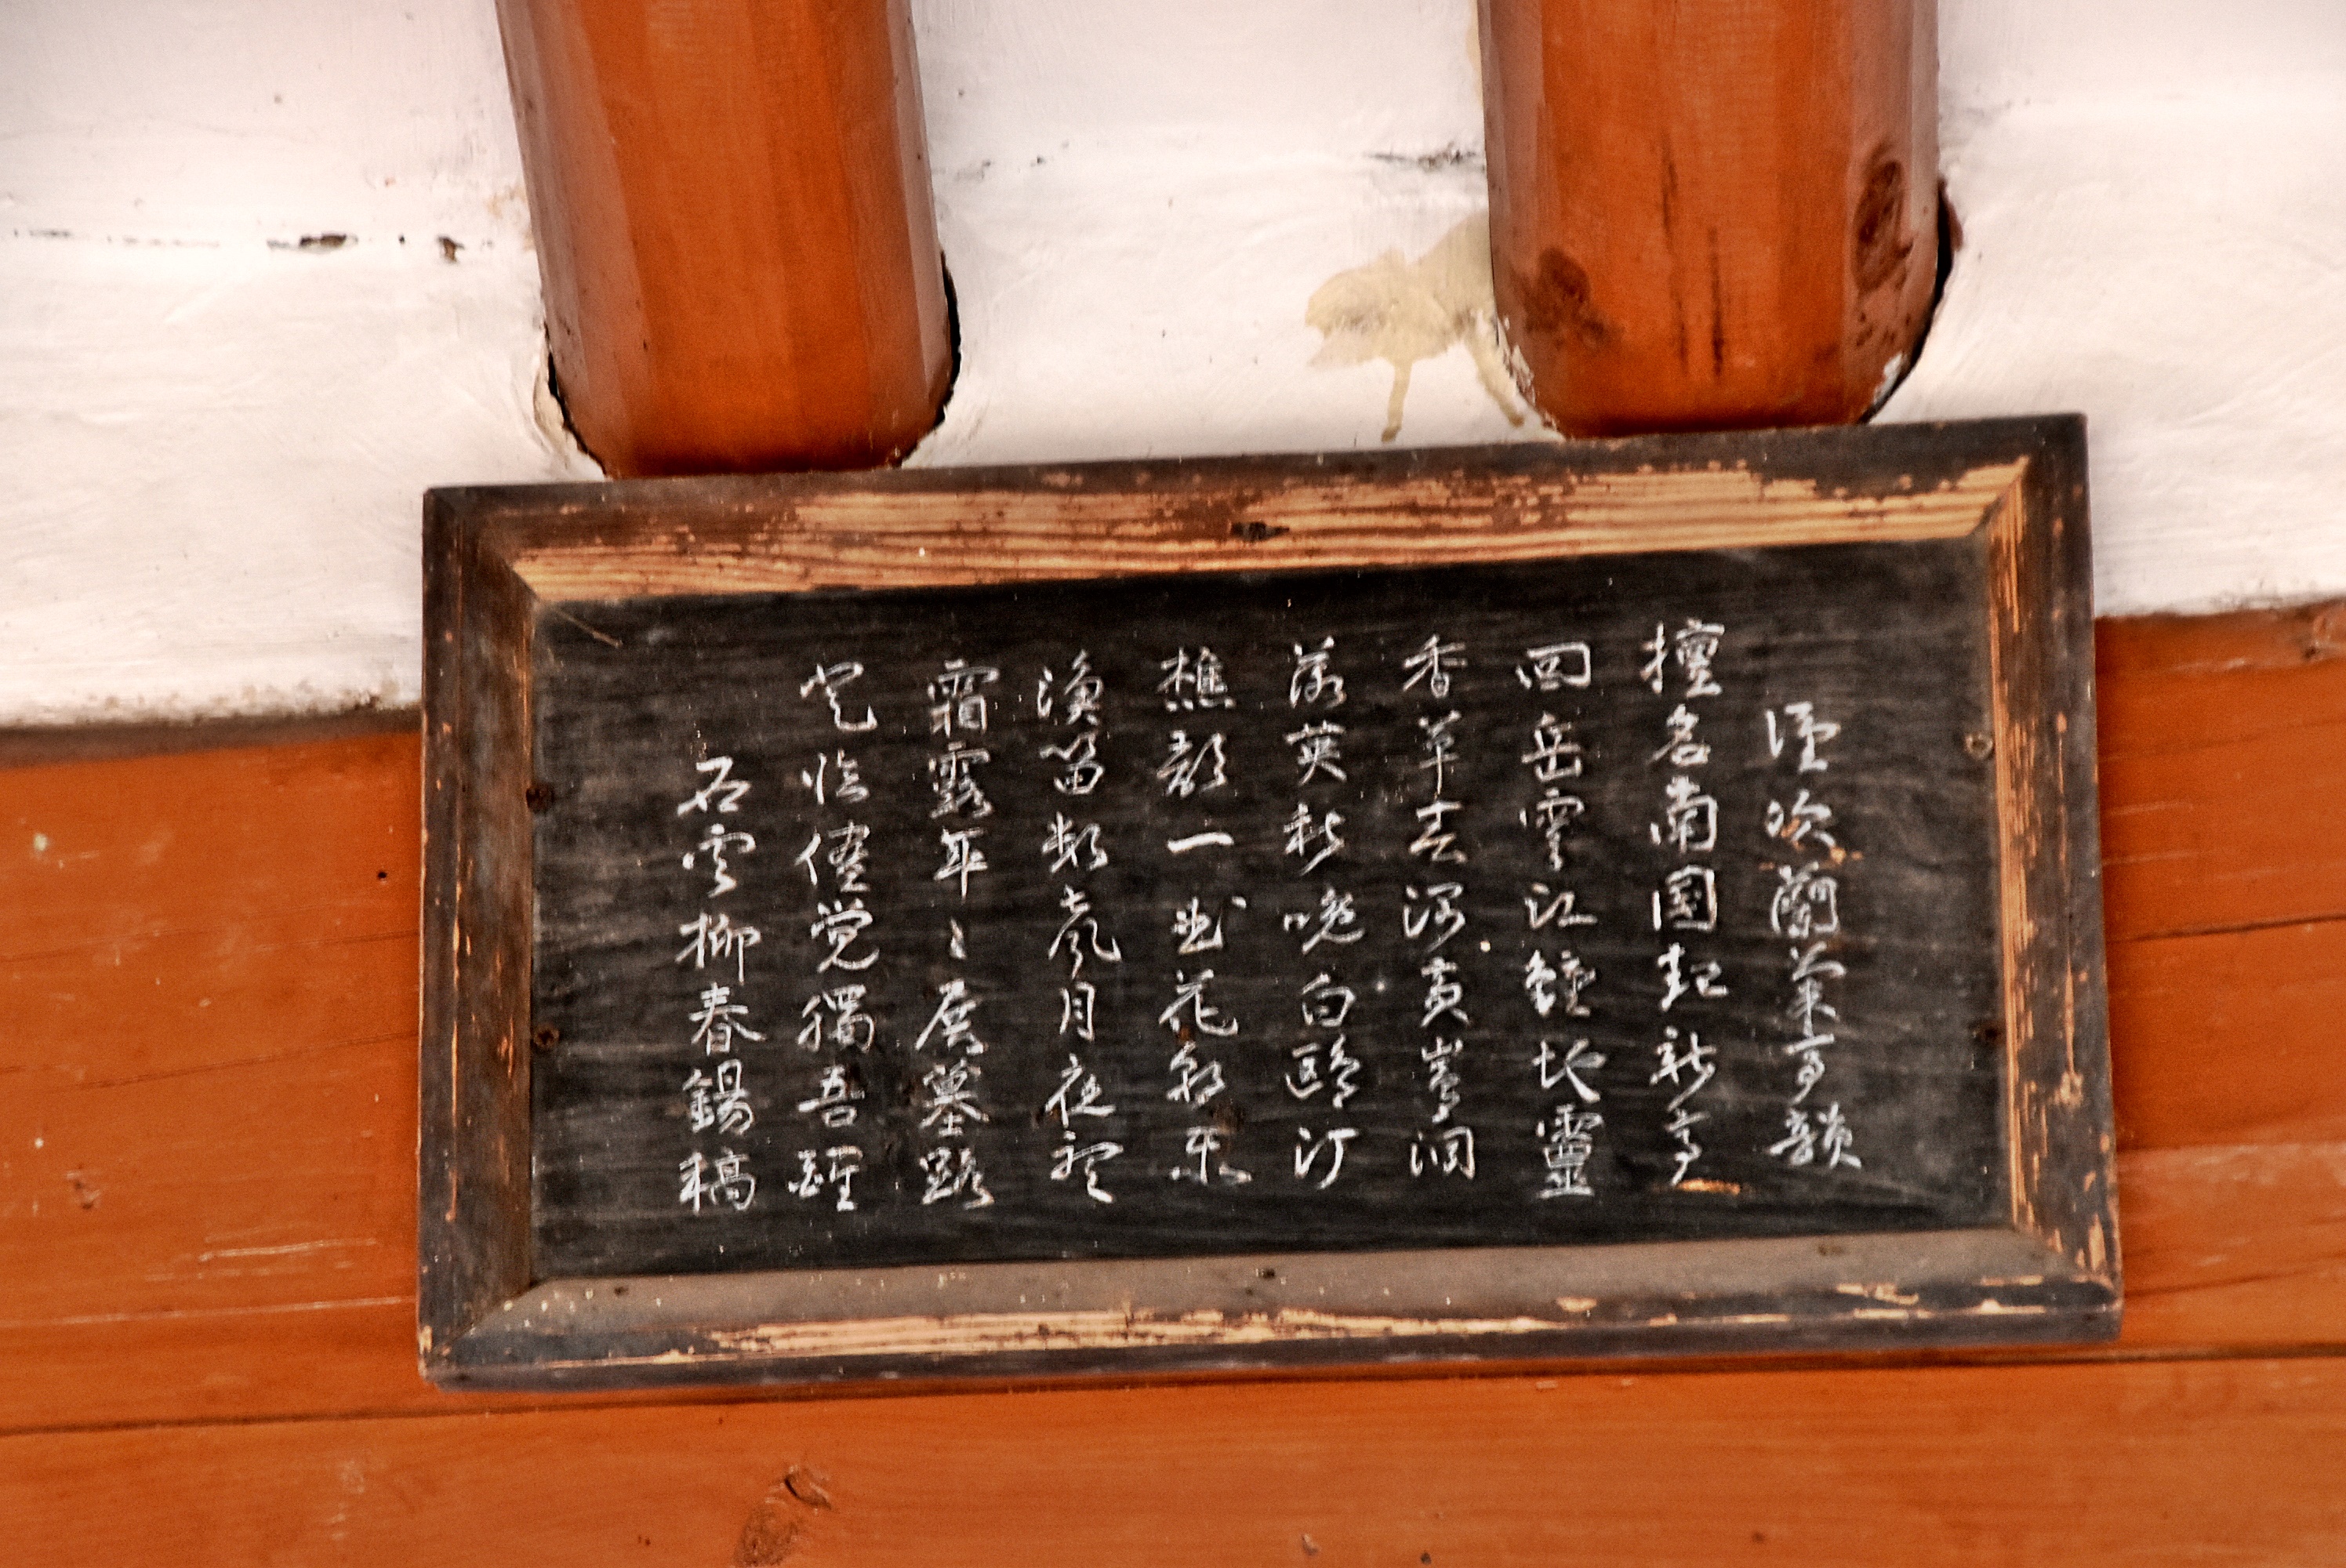 謹次蘭亭韻
擅名南國起新亭
岳雲江鍾地靈
香草春深黃洞
落英秋晚白鷗汀
樵歌一曲花朝樂
漁笛數聲月夜聽
霜露年〻展墓路
登臨儘覺獨吾醒
石雲柳春錫稿